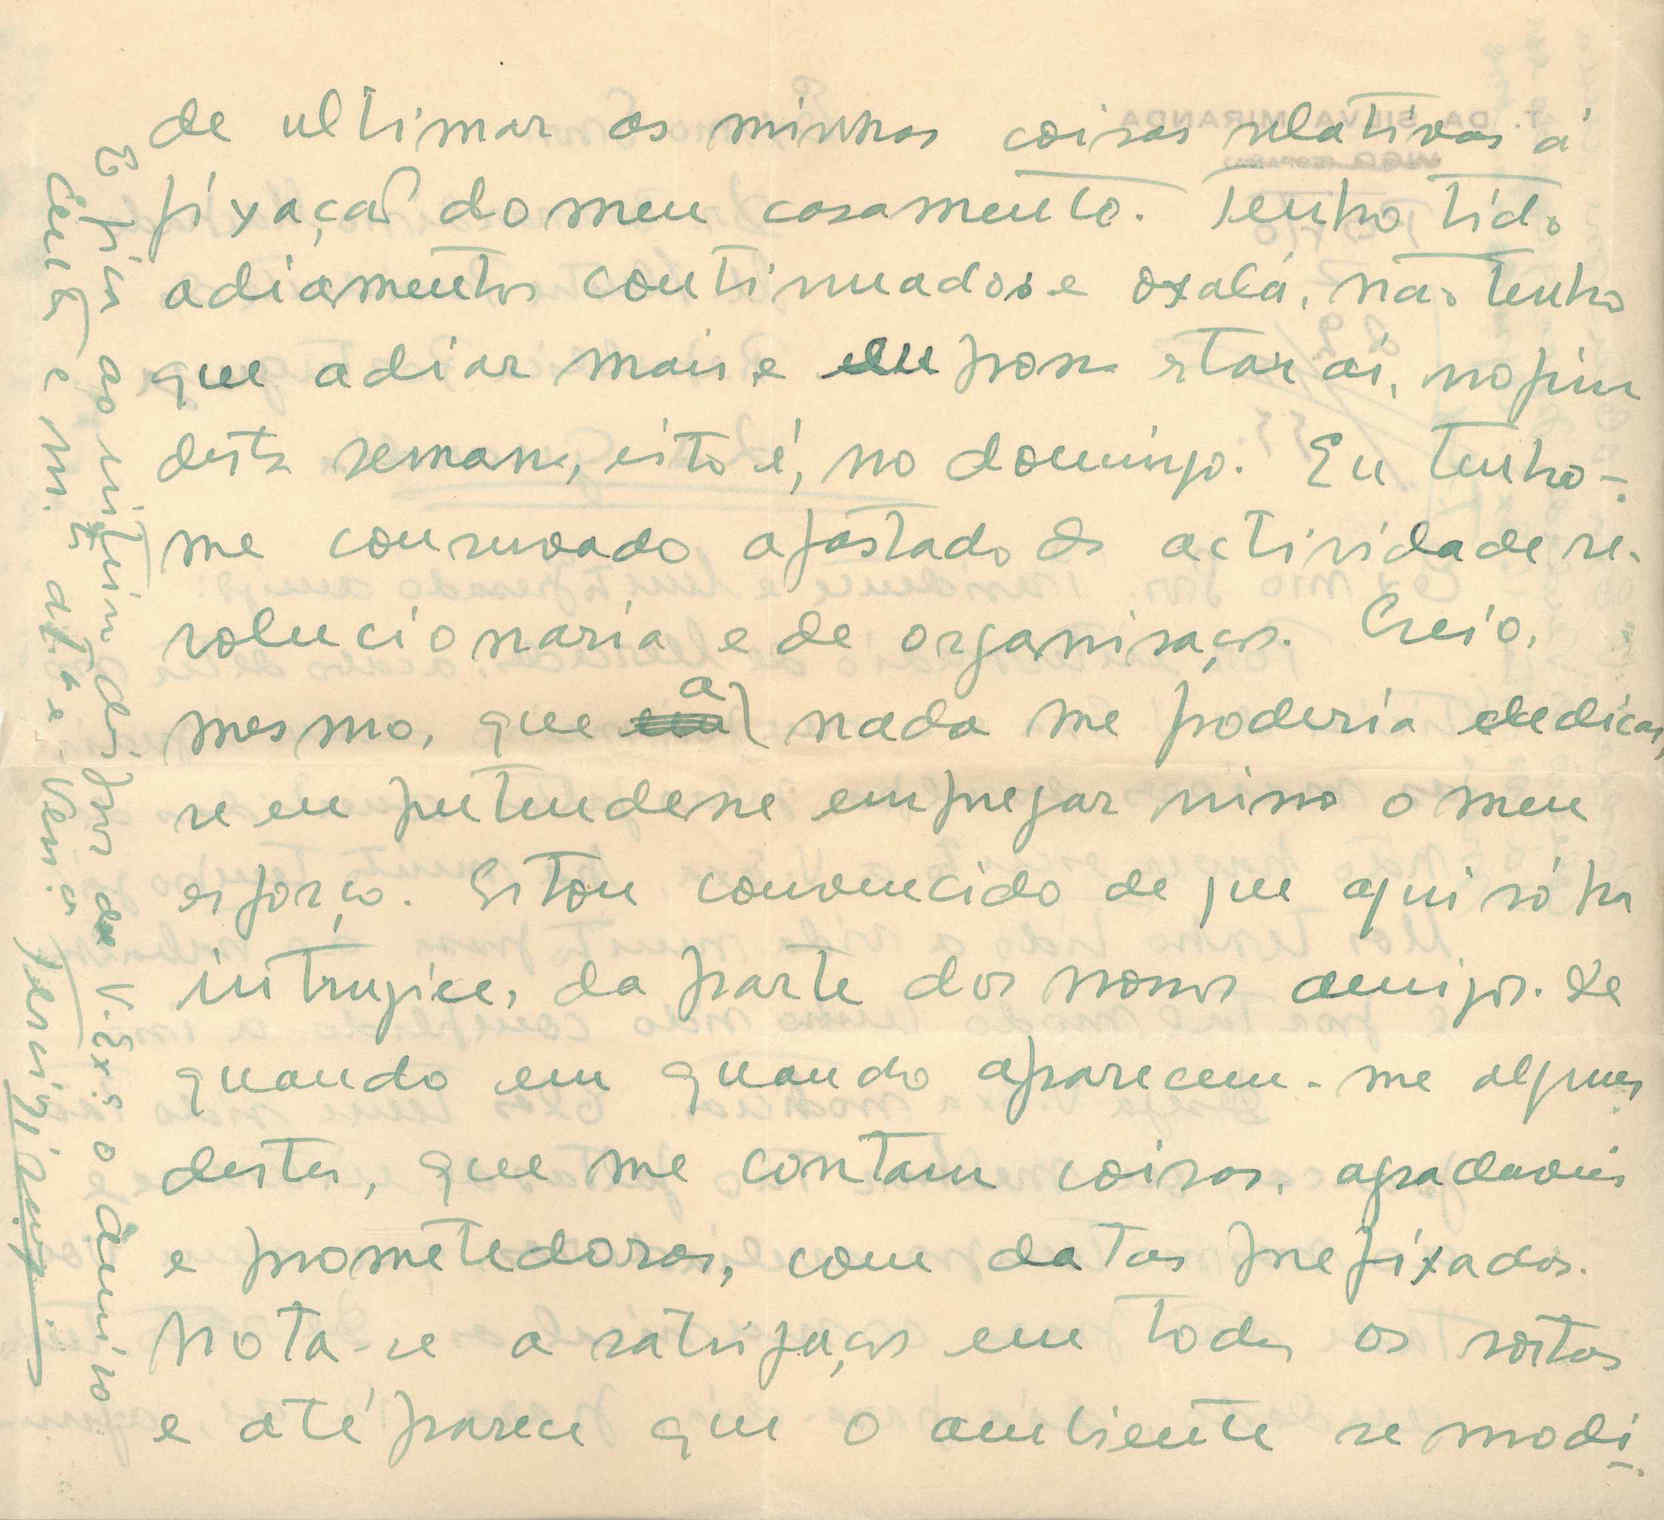 de ultimar as minhas coisas relativas á
fixação do meu casamento. Tenho tido
adiamentos continuados e oxalá, não tenha
que adiar mais e eu possa estar aí, no fim
desta semana, isto é, no domingo. Eu tenho-
me conservado afastado da actividade re-
volucionaria e de organisação. Creio,
mesmo, que a nada me poderia dedicar,
se eu pretendesse empregar nisso o meu
esforço. Estou convencido de que aqui só ha
intrugice, da parte dos nossos amigos. De
quando em quando aparecem-me alguns
destes, que me contam coisas, agradaveis
e prometedoras, com datas prefixadas.
Nota-se a satisfação em todos os rostos
e até parece que o ambiente se modi-
E fica ao inteiro dispor de V. Ex.ª o amigo
certo e m.to at.to e Ven.or
T. DA SILVA MIRANDA